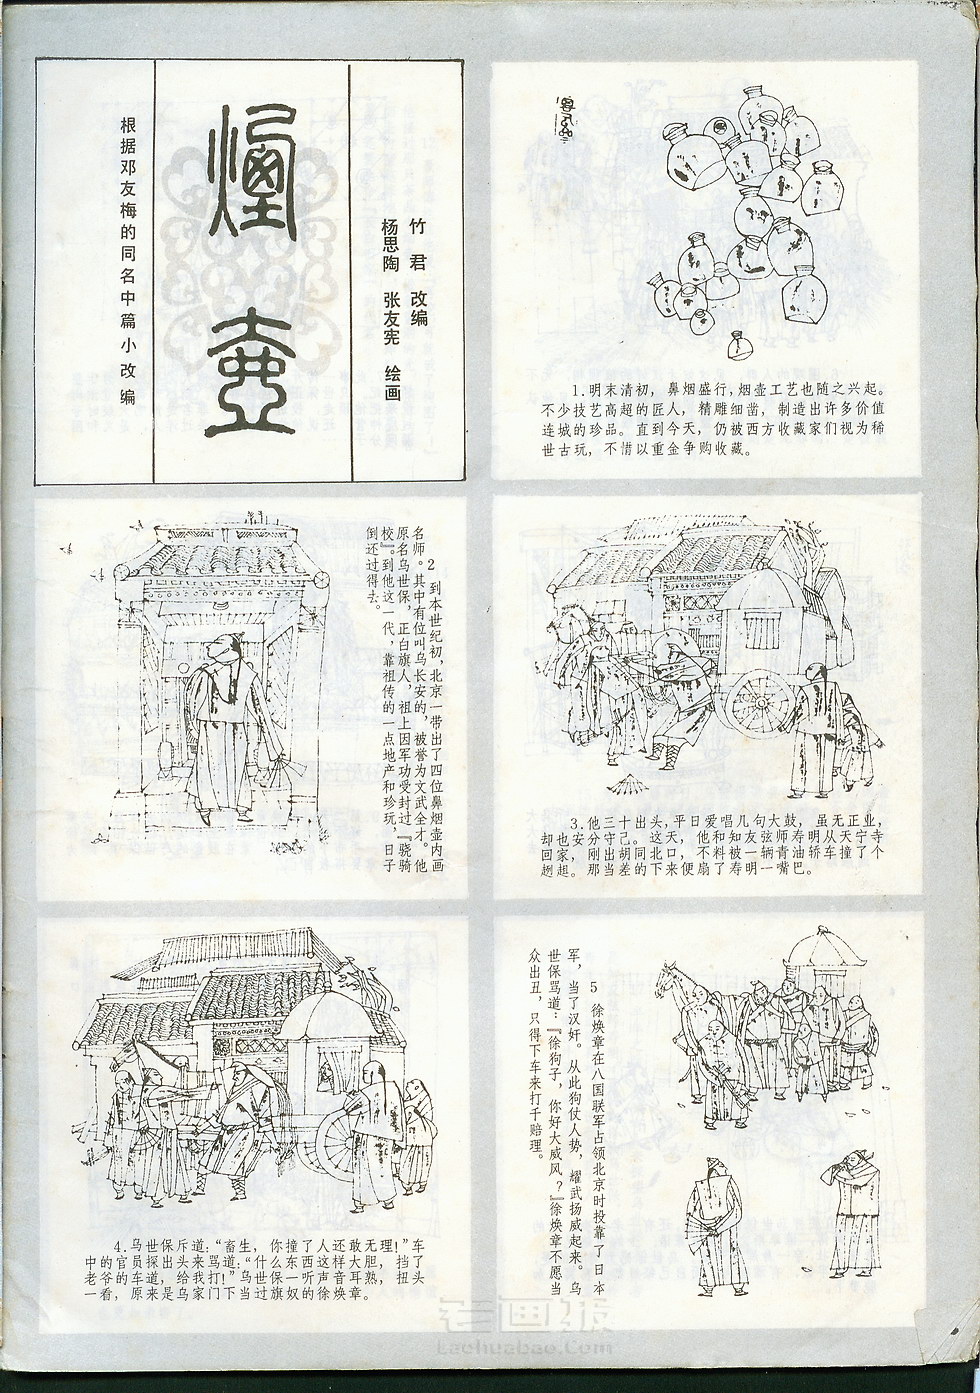 烟壶
竹君 改编
杨思陶 张友宪 绘画
根据邓友梅的同名中篇小改编
1.明末清初，鼻烟盛行，烟壶工艺也随之兴起。
不少技艺高超的匠人，精雕细凿，制造出许多价值
连城的珍品。直到今天，仍被西方收藏家们视为稀
世古玩，不惜以重金争购收藏。
2 到本世纪初，北京一带出了四位鼻烟壶内画
名师。其中有位叫乌长安的，被誉为文武全才。他
原名乌世保，正白旗人，祖上因军功受封过『骁骑
校』。到他这一代，靠祖传的一点地产和珍玩，日子
倒还过得去。
3.他三十出头，平日爱唱几句大鼓，虽无正业，
却也安分守己。这天，他和知友弦师寿明从天宁寺
回家，刚出胡同北口，不料被一辆青油轿车撞了个
趔趄。那当差的下来便扇了寿明一嘴巴。
4.乌世保斥道：“畜生，你撞了人还敢无理！”车
中的官员探出头来骂道：“什么东西这样大胆，挡了
老爷的车道，给我打！”乌世保一听声音耳熟，扭头
一看，原来是乌家门下当过旗奴的徐焕章。
5 徐焕章在八国联军占领北京时投靠了日本
军，当了汉奸。从此狗仗人势，耀武扬威起来。乌
世保骂道：『徐狗子，你好大威风？』徐焕章不愿当
众出丑，只得下车来打千赔理。
老画报
Laohuabao.Com